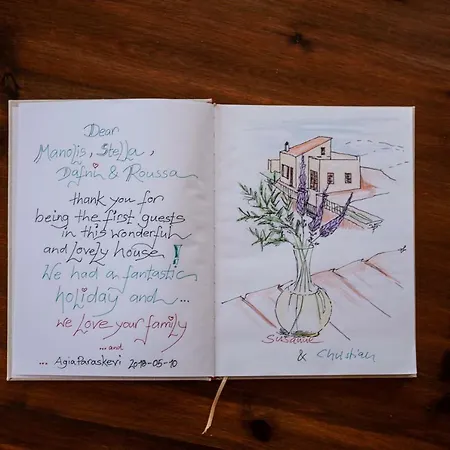 Dear
Manolis, Stella,
Dafnih & Roussa
thank you for
being the first guests
in this wonderful
and lovely house!
We had a fantastic
holiday and ...
we love your family
... and
... Agia Paraskevi 2018-05-10
Susanne
& Christian